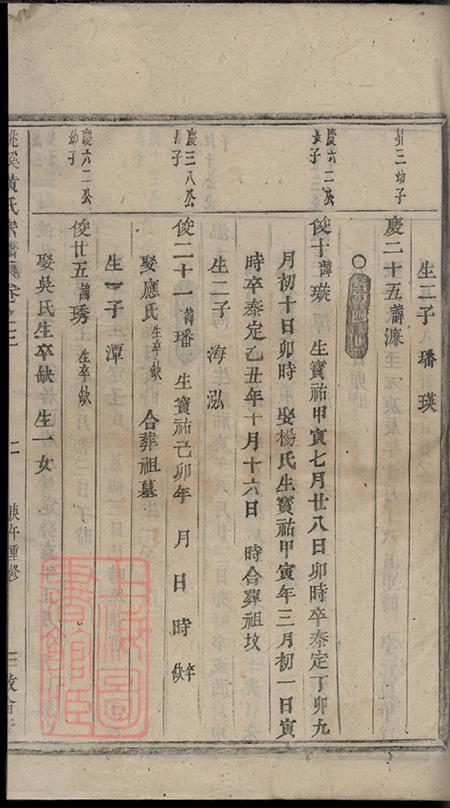 生二子 璠 瑛
昆三幼子
慶二十五 諱濂
第四世
慶六二公長子
俊十 諱璇 生寶祐甲寅七月廿八日卯時卒泰定丁卯九
月初十日卯時 娶楊氏生寶祐甲寅年三月初一日寅
時卒泰定乙丑年十月十六日 時合葬祖坟
生二子 海 泓
慶三八公長子
俊二十一 諱璠 生寶祐己卯年 月 日 時 卒缺
娶應氏 生卒缺 合葬祖墓
生一子 潭
慶六二公幼子
俊廿五 諱琇 生卒缺
娶吳氏生卒缺 生一女
黄氏宗譜 卷之三 二 庚午重修
圖書館